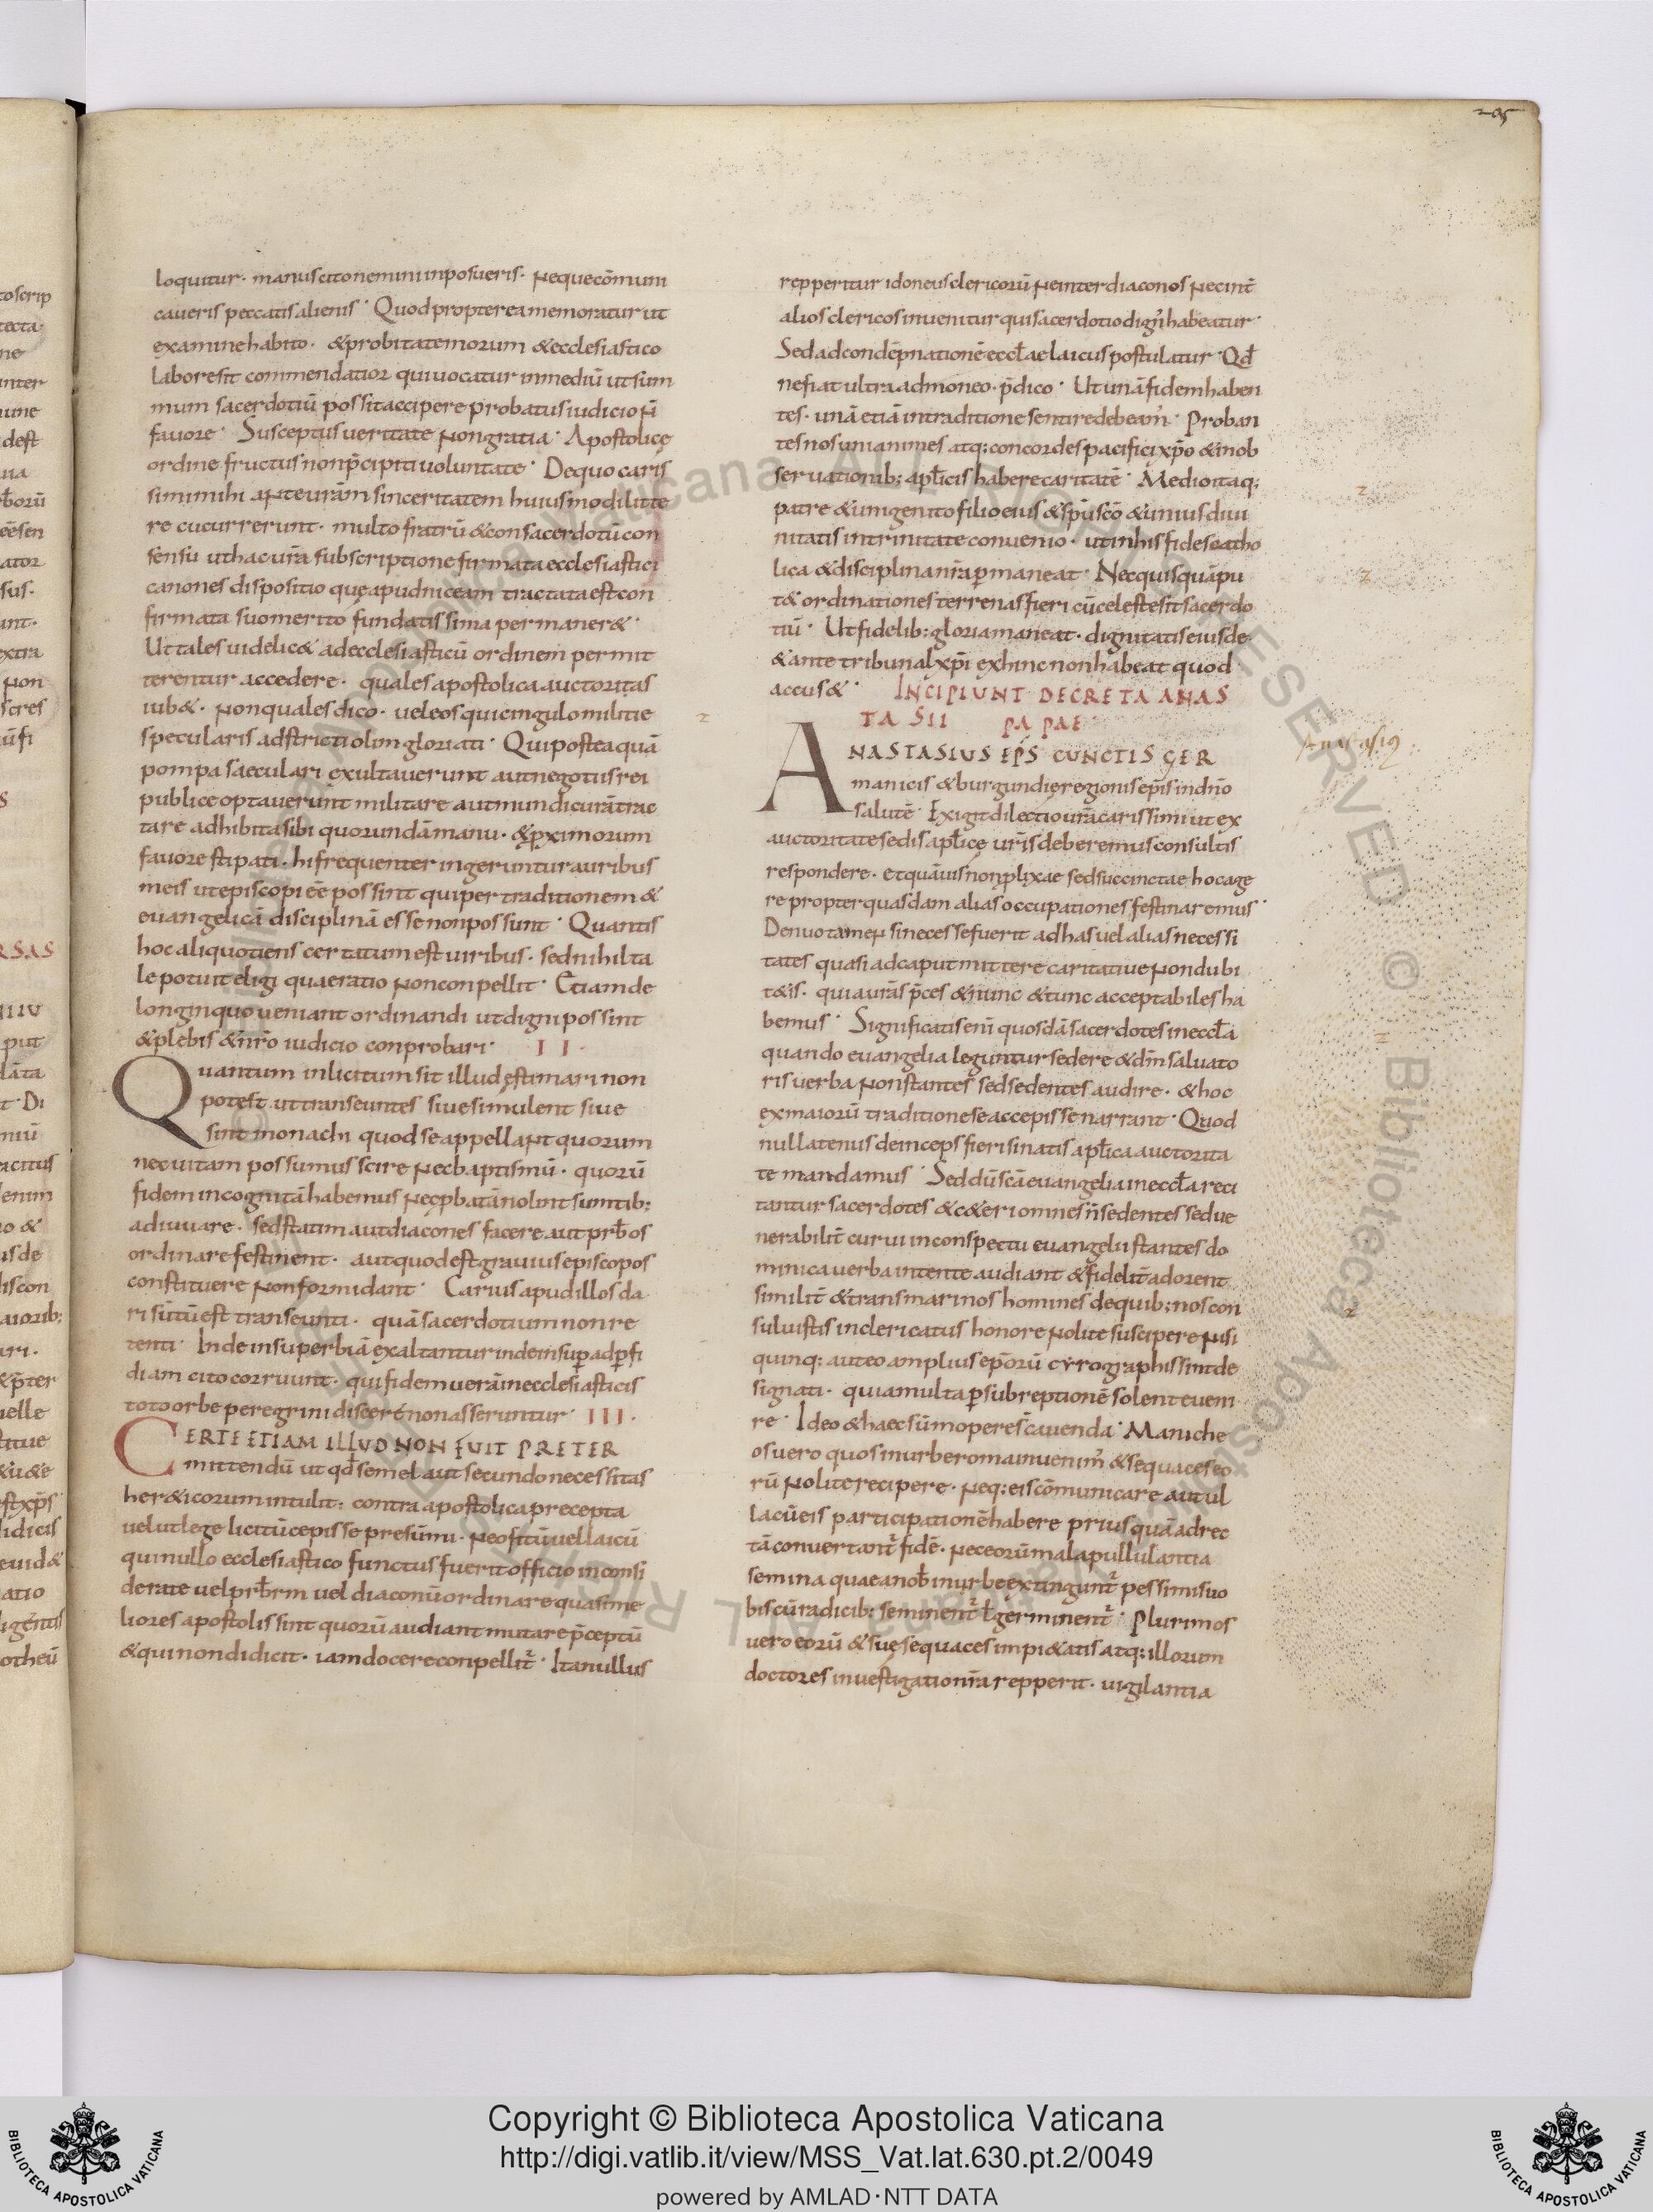 205
loquitur· manus cito nemini inposueris· Neque cōmuni
caveris peccatis alienis· Quod propterea memoratur ut
examine habito· & probitate morum & ecclesiastico
labore sit commendatior qui vocatur in mediū ut sum
mum sacerdotiū possit accipere probatus iudicio ñ
favore· Susceptus veritate Non gratia· Apostolicę
ordine fructus non p̄cipiti voluntate· De quo caris
simi mihi Ante vr̄am sinceritatem huiusmodi litte
re cucurrerunt· multo fratrū & consacerdotū con
sensu ut hac vr̄a subscriptione firmata ecclesiastici
canones dispositio que apud niceam tractata est con
firmata suo merito fundatissima permaner&·
Ut tales videlic& ad ecclesiasticū ordinem permit
terentur accedere· quales apostolica auctoritas
iub&· Non quales dico· vel eos qui cingulo militie
specularis adstricti olim gloriati· Qui postea quā
pompa saeculari exultaverunt aut negotiis rei
publice optaverunt militare aut mundi curā trac
tare adhibita sibi quorundā manu· & p̱ximorum
favore stipati· hi frequenter ingeruntur auribus
meis ut episcopi eē possint qui per traditionem &
euangelicā disciplinā esse non possunt· Quantis
hoc aliquotiens certatum est viribus· sed nihil ta
le potuit eligi quae ratio Non conpellit· Etiam de
longinquo veniant ordinandi ut digni possint
& plebis & nr̄o iudicio conprobari· II·
Quantum inlicitum sit illud ęstimari non
potest ut transeuntes sive simulent sive
sint monachi quod se appellant quorum
nec vitam possumus scire Nec baptismū· quorū
fidem incognitā habemus Nec p̱batā nolint sumtib;
adiuvare· sed statim aut diacones facere aut prb̄os
ordinare festinent· aut quod est gravius episcopos
constituere Non formidant· Carius apud illos da
ri sūtū est transeunti· quā sacerdotium non re
tenti· Inde in superbiā exaltantur inde insup̱ ad p̱fi
diam cito corruunt· qui fidem verā in ecclesiasticis
toto orbe peregrini discere non asseruntur· III·
CERTE ETIAM ILLUD NON FUIT PRETER
mittendū ut qd̄ semel aut secundo necessitas
her&icorum intulit: contra apostolica precepta
velut lege licitū cepisse presūmi· Neofitū vel laicū
qui nullo ecclesiastico functus fuerit officio inconsi
derate vel prb̄rm vel diaconū ordinare quasi me
liores apostolis sint quorū audiant mutare p̄ceptū
& qui non didicit· iam docere conpellit̄· Ita nullus
repperitur idoneus clericorū Ne inter diaconos Nec int̄
alios clericos invenitur qui sacerdotio dign̄ habeatur·
Sed ad condēpnationē eccl̄ae laicus postulatur· Qd̄
ne fiat ultra admoneo· p̄dico· Ut unā fidem haben
tes· unā etiā in traditione sentire debeam̄· Proban
tes nos unianimes atq; concordes pacifici xp̄o & in ob
servationib; apl̄icis habere caritatē· Medio itaq;
patre & unigenito filio eius & sp̄u sc̄o & unius divi
nitatis in trinitate convenio· ut in his fides catho
lica & disciplina nr̄a p̱maneat· Nec quisquā pu
t& ordinationes terrenas fieri cū celeste sit sacerdo
tiū· Ut fidelib; gloria maneat· dignitatis eiusde
& ante tribunal xp̄i exhinc non habeat quod
accus&· INCIPIUNT DECRETA ANAS
TASII PAPAE·
ANASTASIUS EP̄S CUNCTIS GER
Anastasi9
manicis & burgundię regionis ep̄is in dn̄o
salutē· Exigit dilectio vr̄a carissimi ut ex
auctoritate sedis apl̄ice vr̄is deberemus consultis
respondere· et quāvis non p̱lixae sed succinctae hoc age
re propter quasdam alias occupationes festinaremus·
Denuo tamen si necesse fuerit ad has vel alias necessi
tates quasi ad caput mittere caritative Non dubi
t&is· quia vr̄as p̄ces & nunc & tunc acceptabiles ha
bemus· Significatis enī quosdā sacerdotes in eccl̄a
quando euangelia leguntur sedere & dn̄i salvato
ris verba Non stantes sed sedentes audire· & hoc
ex maiorū traditione se accepisse narrant· Quod
nullatenus deinceps fieri sinatis apl̄ica auctorita
te mandamus· Sed dū sc̄a euangelia in eccl̄a reci
tantur sacerdotes & c&eri omnes n̄ sedentes sed ve
nerabilit̄ curvi in conspectu euangelii stantes do
minica verba intente audiant & fidelit̄ adorent
similit̄ & transmarinos homines de quib; nos con
suluistis in clericatus honore Nolite suscipere Nisi
quinq; aut eo amplius ep̄orū cyrographis sint de
signati· quia multa p̱ subreptionē solent eveni
re· Ideo & haec sūmopere s̄ cavenda· Maniche
os vero quos in urbe roma invenim̄ & sequaces eo
rū Nolite recipere· Neq; eis cōmunicare aut ul
la cū eis participationē habere prius quā ad rec
tā convertant̄ fidē· Nec eorū mala pullulantia
semina quae a nob̄ in urbe extingunt̄ pessimis vo
biscū radicib; seminent̄ l̄ germinent̄· Plurimos
vero eorū & sue sequaces impi&atis atq; illorum
doctores investigatio nr̄a repperit· vigilantia
Copyright © Biblioteca Apostolica Vaticana
http://digi.vatlib.it/view/MSS_Vat.lat.630.pt.2/0049
powered by AMLAD·NTT DATA